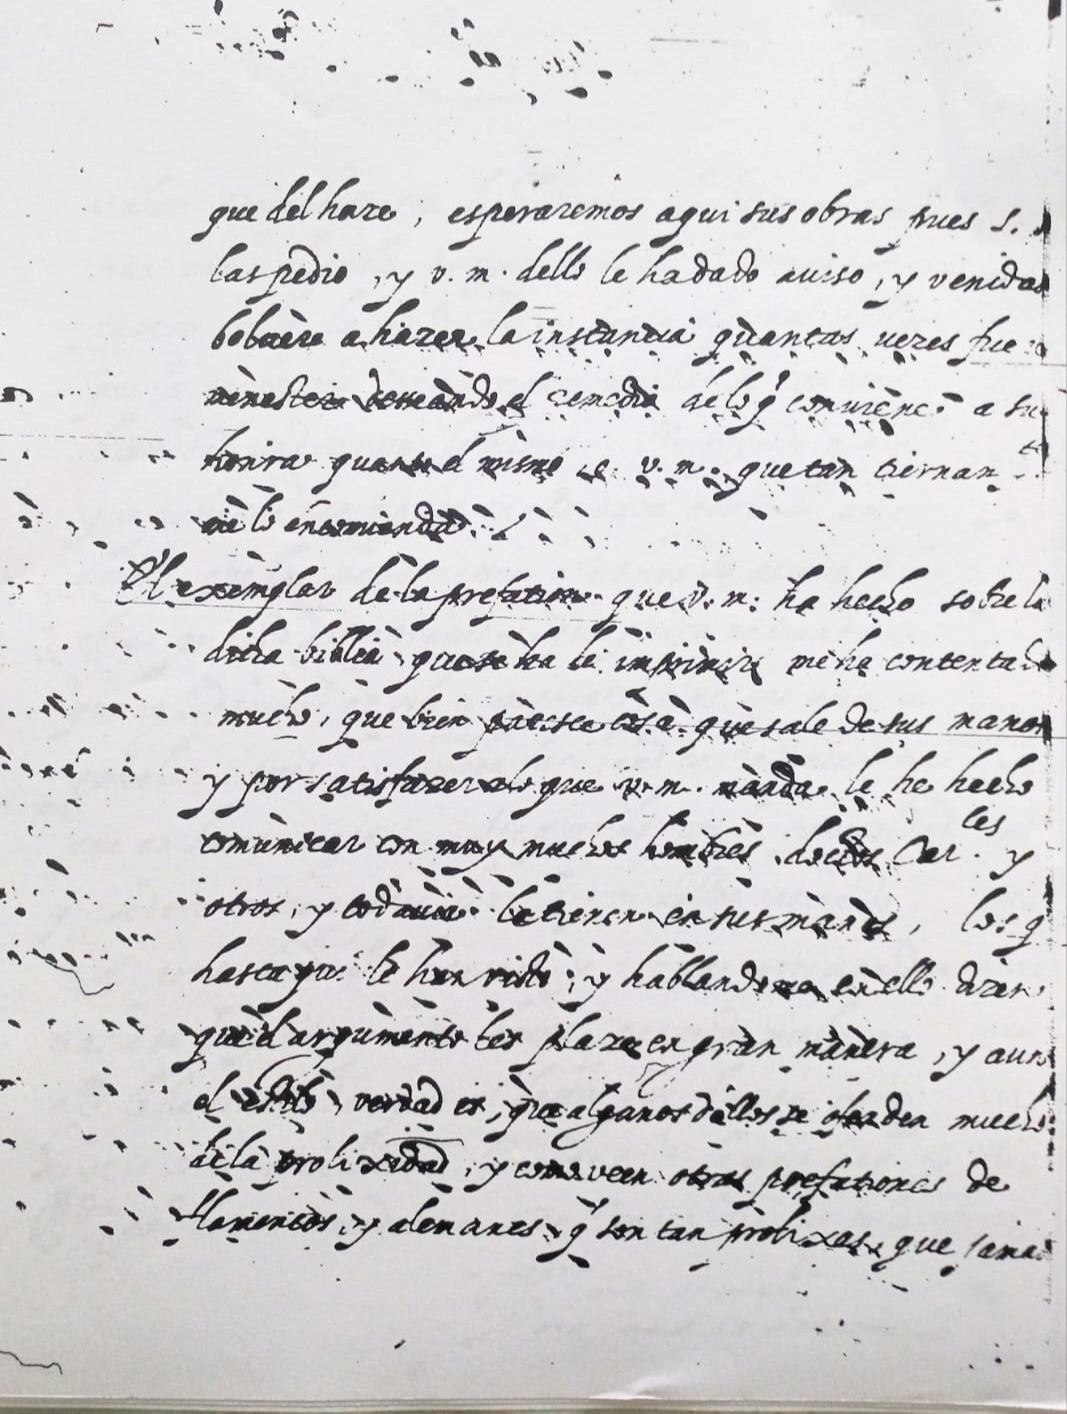 que del haze, esperaremos aqui sus obras pues S.
las pedio, y v. m. dello le ha dado aviso, y venidas
bolvere a hazer la instancia quantas vezes fue
menester desseando el remedio de lo q̃ conviene a su
honra quanto el mismo v. m. que tan tiernam
me lo encomienda.
El exemplar de la prefation que v. m. ha hecho sobre la
dicha biblia que se ha de imprimir me ha contentado
mucho, que bien paresce cosa que sale de sus manos
y por satisfazer a lo que v. m. manda le he hecho
comunicar con muy muchos hombres doctos Car.les y
otros, y todavia le tienen en sus manos, los q̃
hasta ya le han visto, y hablando en ello dizen
que el argumento les plaze en gran manera, y aun
el estilo, verdad es, que algunos dellos se ofenden mucho
de la prolixidad, y como veen otras prefationes de
flamencos, y alemanes q̃ son tan prolixas, que jamas